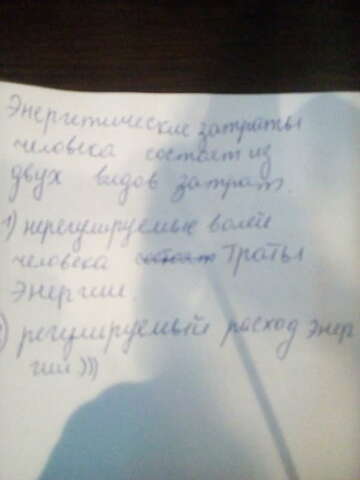 Энергетические затраты
человека состоят из
двух видов затрат.
1) нерегулируемые волей
человека состоят траты
энергии.
) регулируемый расход энер
гии)))